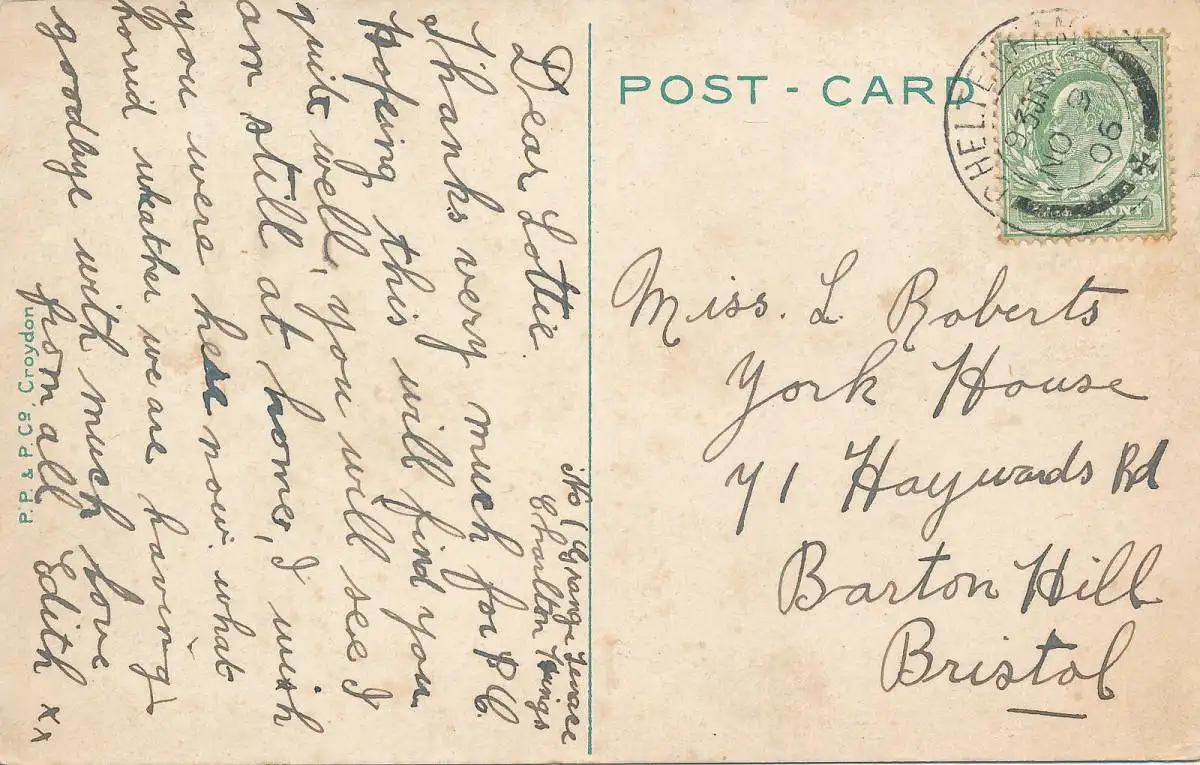 No 1 Grange Terrace
Charlton Kings
Dear Lottie.
Thanks very much for P C.
Hoping this will find you
quite well, you will see I
am still at home, I wish
you were here now. what
horrid weather we are having
goodbye with much love
from all Edith xx
P. P. & P. Co. Croydon
POST - CARD
CHELTENHAM
NO 9
06
POSTAGE
Miss. L Roberts
York House
71 Haywards Rd
Barton Hill
Bristol